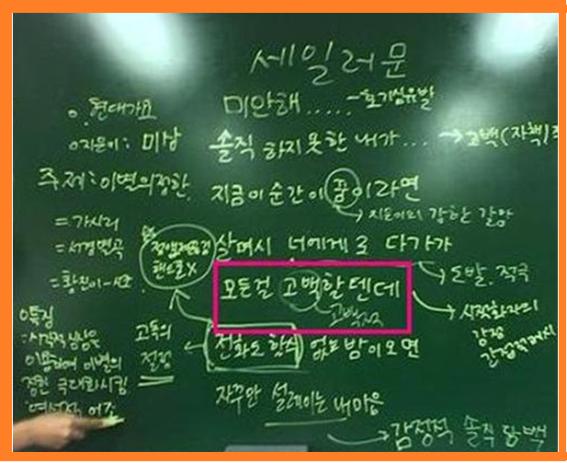 세일러문
○ 현대가요
미안해..... → 호기심유발
○ 지은이: 미상
솔직 하지 못한 내가... → 고백(자책)
주제: 이별의 정한
지금 이 순간이 꿈이라면
→ 지은이의 강한 갈망
= 가시리
= 서경별곡
= 황진이-시조
살며시 너에게로 다가가
→ 도발, 적극
모든걸 고백할텐데
→ 시적화자의 감정
전화도 할수 없는밤이오면
고독의 절정
○ 특징
이용하여 이별의
정한 극대화시킴
자꾸만 설레이는 내마음
→ 감정적 솔직 당백